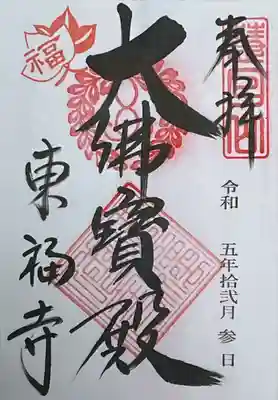 奉拝
令和　五年拾弐月　参　日
大佛寳殿
福
東福寺